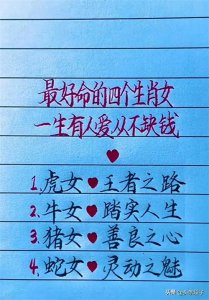 最好命的四个生肖女
一生有人爱从不缺钱
1.虎女♥王者之路
2.牛女♥踏实人生
3.猪女♥善良之心
4.蛇女♥灵动之魅